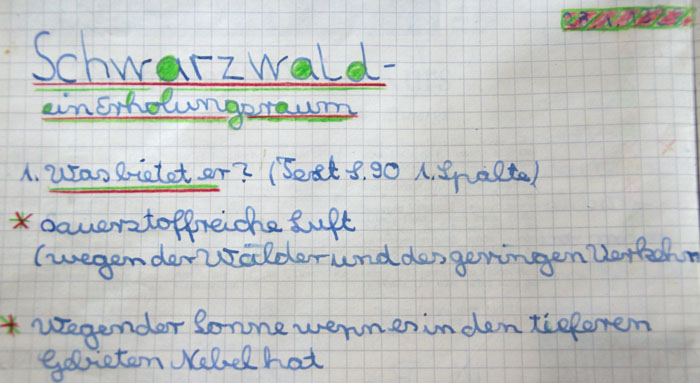 Schwarzwald-
ein Erholungsraum
1. Was bietet er? (Text S.90 1. Spalte)
* sauerstoffreiche Luft
(wegen der Wälder und des geringen Verkehr
* wegen der Sonne wenn es in den tieferen
Gebieten Nebel hat